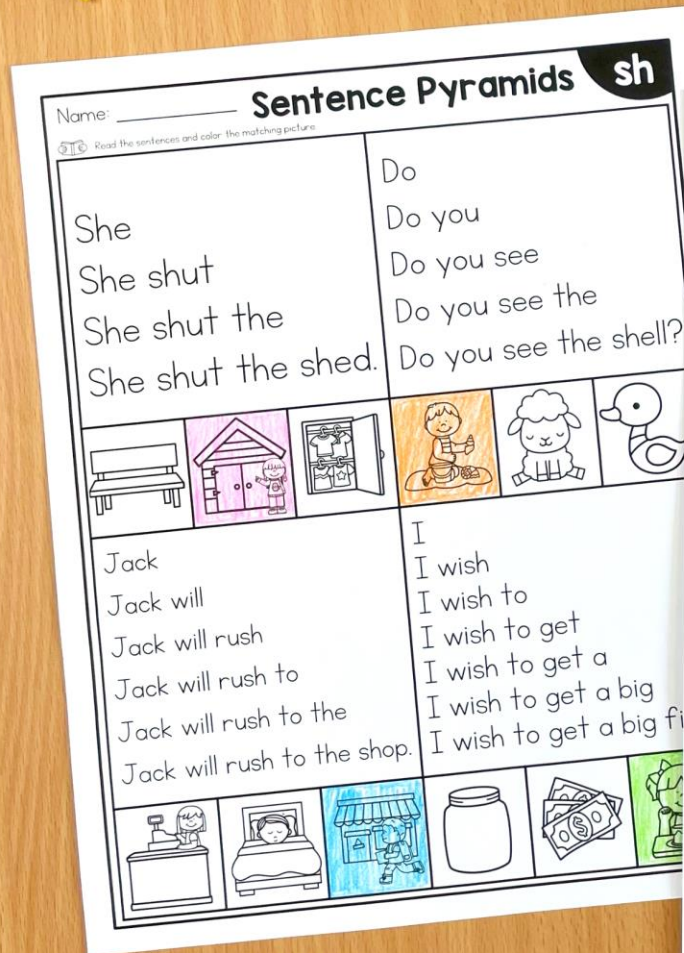 Name:
Sentence Pyramids
sh
Read the sentences and color the matching picture
She
She shut
She shut the
She shut the shed.
Do
Do you
Do you see
Do you see the
Do you see the shell?
Jack
Jack will
Jack will rush
Jack will rush to
Jack will rush to the
Jack will rush to the shop.
I
I wish
I wish to
I wish to get
I wish to get a
I wish to get a big
I wish to get a big fi
$